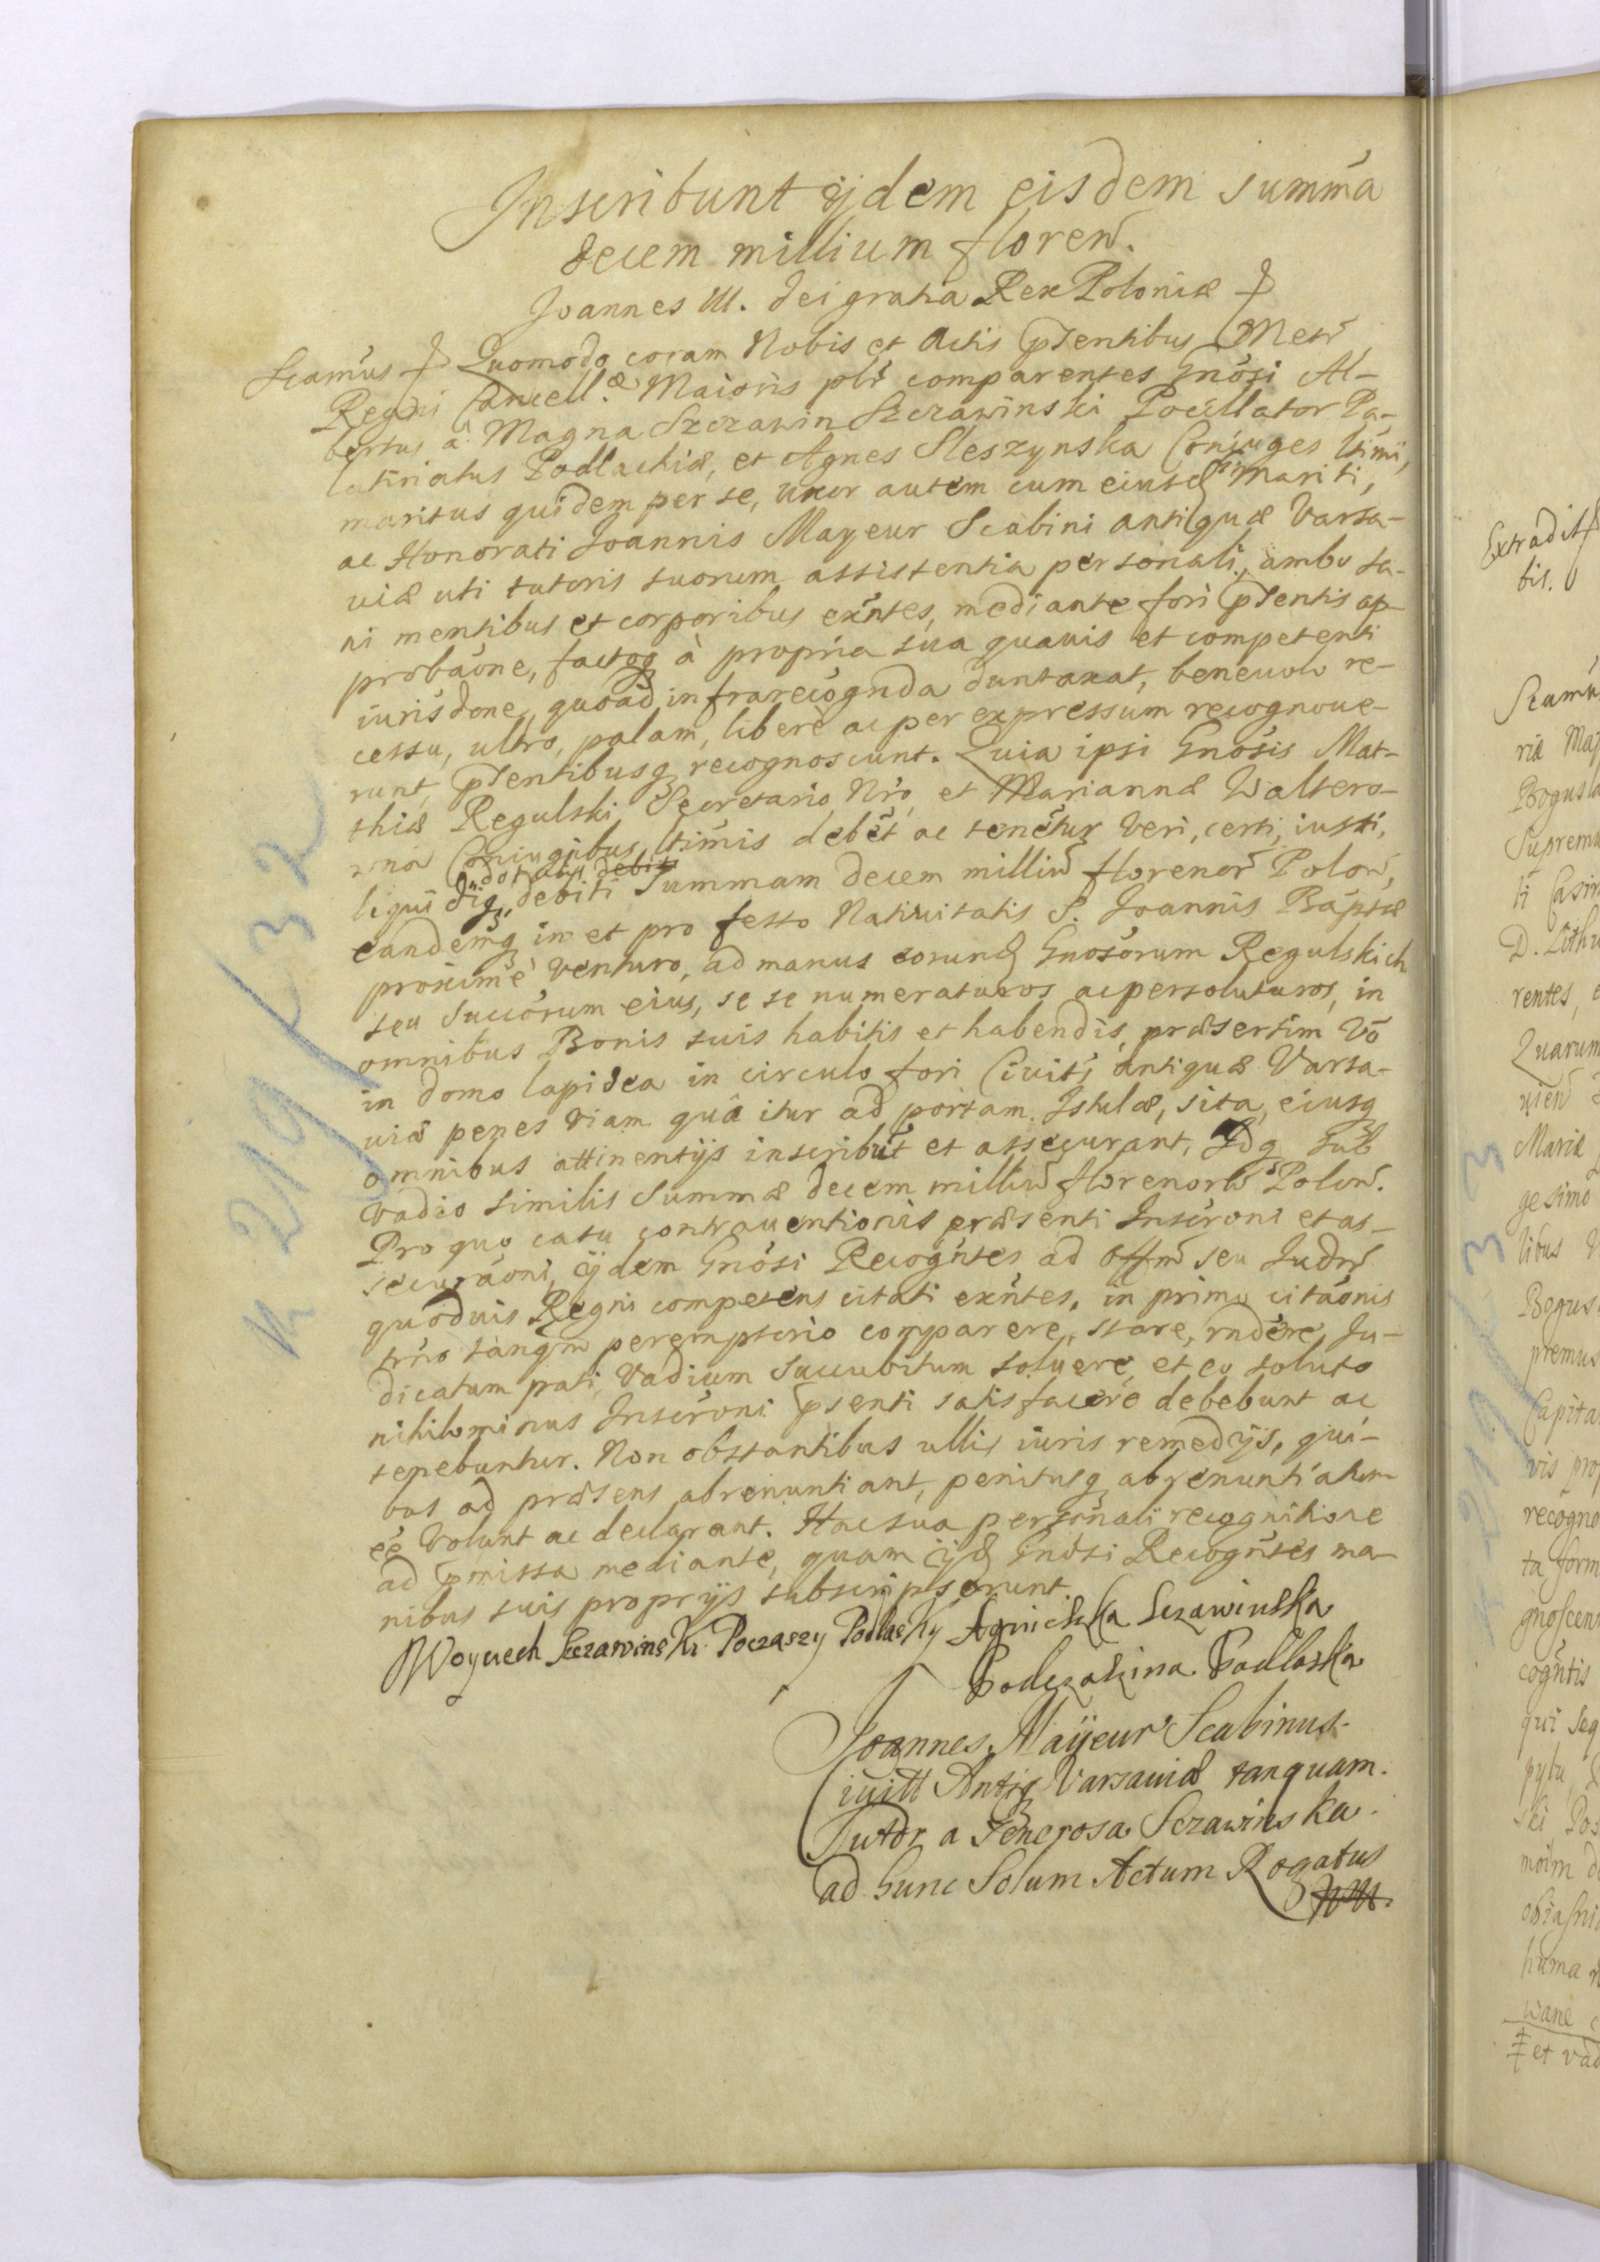 Inscribunt ijdem eisdem summã
decem millium floreñ.
Joannes III. Dei gratia Rex Poloniæ
Scamus Quomodo coram Nobis et Actis pñtentibus Metr
Regni Cancell.æ Maioris plr comparentes Gnosi Al-
bertus à Magna Szczawin Szczawinski Pocillator Pa-
latinatus Podlachiæ, et Agnes Sleszynska Coniuges ltimi,
maritus quidem per se, uxor autem cum eiusd mariti,
ac Honorati Joannis Mayeur Scabini antiquæ Varsa-
viæ uti tutoris suorum assistentia personali, ambo sa-
ni mentibus et corporibus exntes, mediante fori pñtentis ap-
probaone, factoq à propria sua quavis et competenti
iurisdone, quoad infrarecognda duntaxat, benevolo re-
cessu, ultro, palam, libere ac per expressum recognoue-
runt, pñtentibusq recognoscunt. Quia ipsi Gnosis Mat-
thiæ Regulski Secretario Nro, et Mariannæ Waltero-
wna Coniugibus ltimis debet ac tenetur veri, certi, iusti,
liqui diq debiti Summam decem milliu florenor Polon,
eandemq in et pro festo Nativitatis S. Joannis Baptæ
proxime venturo, ad manus eorund Gnosorum Regulskich
seu Succorum eius, se se numeraturos ac persoluturos, in
omnibus Bonis suis habitis et habendis, præsertim vo
in domo lapidea in circulo fori Civits antiquæ Varsa-
viæ penes viam quâ itur ad portam Istulæ, sita, eiusq
omnibus attinentijs inscribut et assecurant, Idq sub
vadio similis Summæ decem milliu florenoru Polon.
Pro quo casu contraventionis præsenti Inscroni et as-
securaoni, ijdem Gnosi Recogntes ad offm seu Judm
quoduis Regni competens citati exntes, in primo citaonis
trno tanqm peremptorio comparere, stare, rndere, Ju-
dicatum pati, vadium succubitum soluere, et eo soluto
nihilominus Inscroni psenti satisfacere debebunt ac
tenebuntur. Non obstantibus ullis iuris remedijs, qui-
bus ad præsens abrenuntiant, penitusq abrenuntiatum
eê volunt ac declarant. Hac sua personali recognitione
ad pmissa mediante, quam ijd Gnosi Recogntes ma-
nibus suis proprijs subscripserunt
Woyciech Sczawinski Poczaszy Podlasky Agnieszka Sczawinska
Podczaszina Podlaska
Joannes Maijeur Scabinus
Ciuitt Antiq Varsauiæ tanquam
Tutor a Generosa Sczawinska
ad hunc Solum Actum Rogatus
Extradit
tis.
Scamus
riæ Maj
Bogusla
Supremu
ti Casim
D. Lithu
rentes, e
Quarum
Mariæ
gesimo
libus
Bogus
premus
Capita
vis prop
recogno
ta form
gnoscen
cogntis
qui seq
ski Pos
huma
wane
et vad